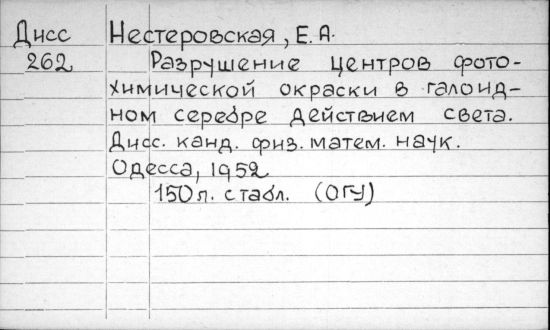 Дисс Нестеровская, Е.А.
262 Разрушение центров фото-
химической окраски в галоид-
ном серебре действием света.
Дисс. канд. физ. матем. наук.
Одесса, 1952
150л. с табл. (ОГУ)